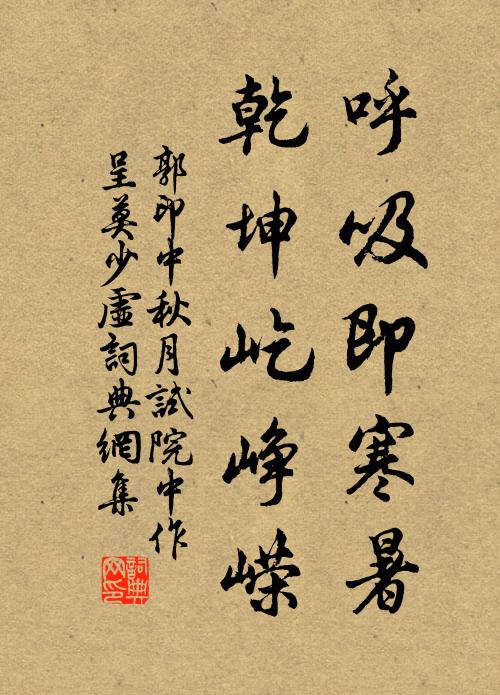 呼吸即寒暑
乾坤屹峥嵘
郭印中秋月試院中作
呈莫少虛詞典網集
詞典
网印